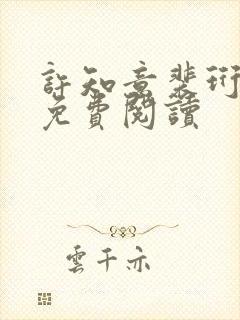 許知意裴珩
免費閱讀
雲千亦